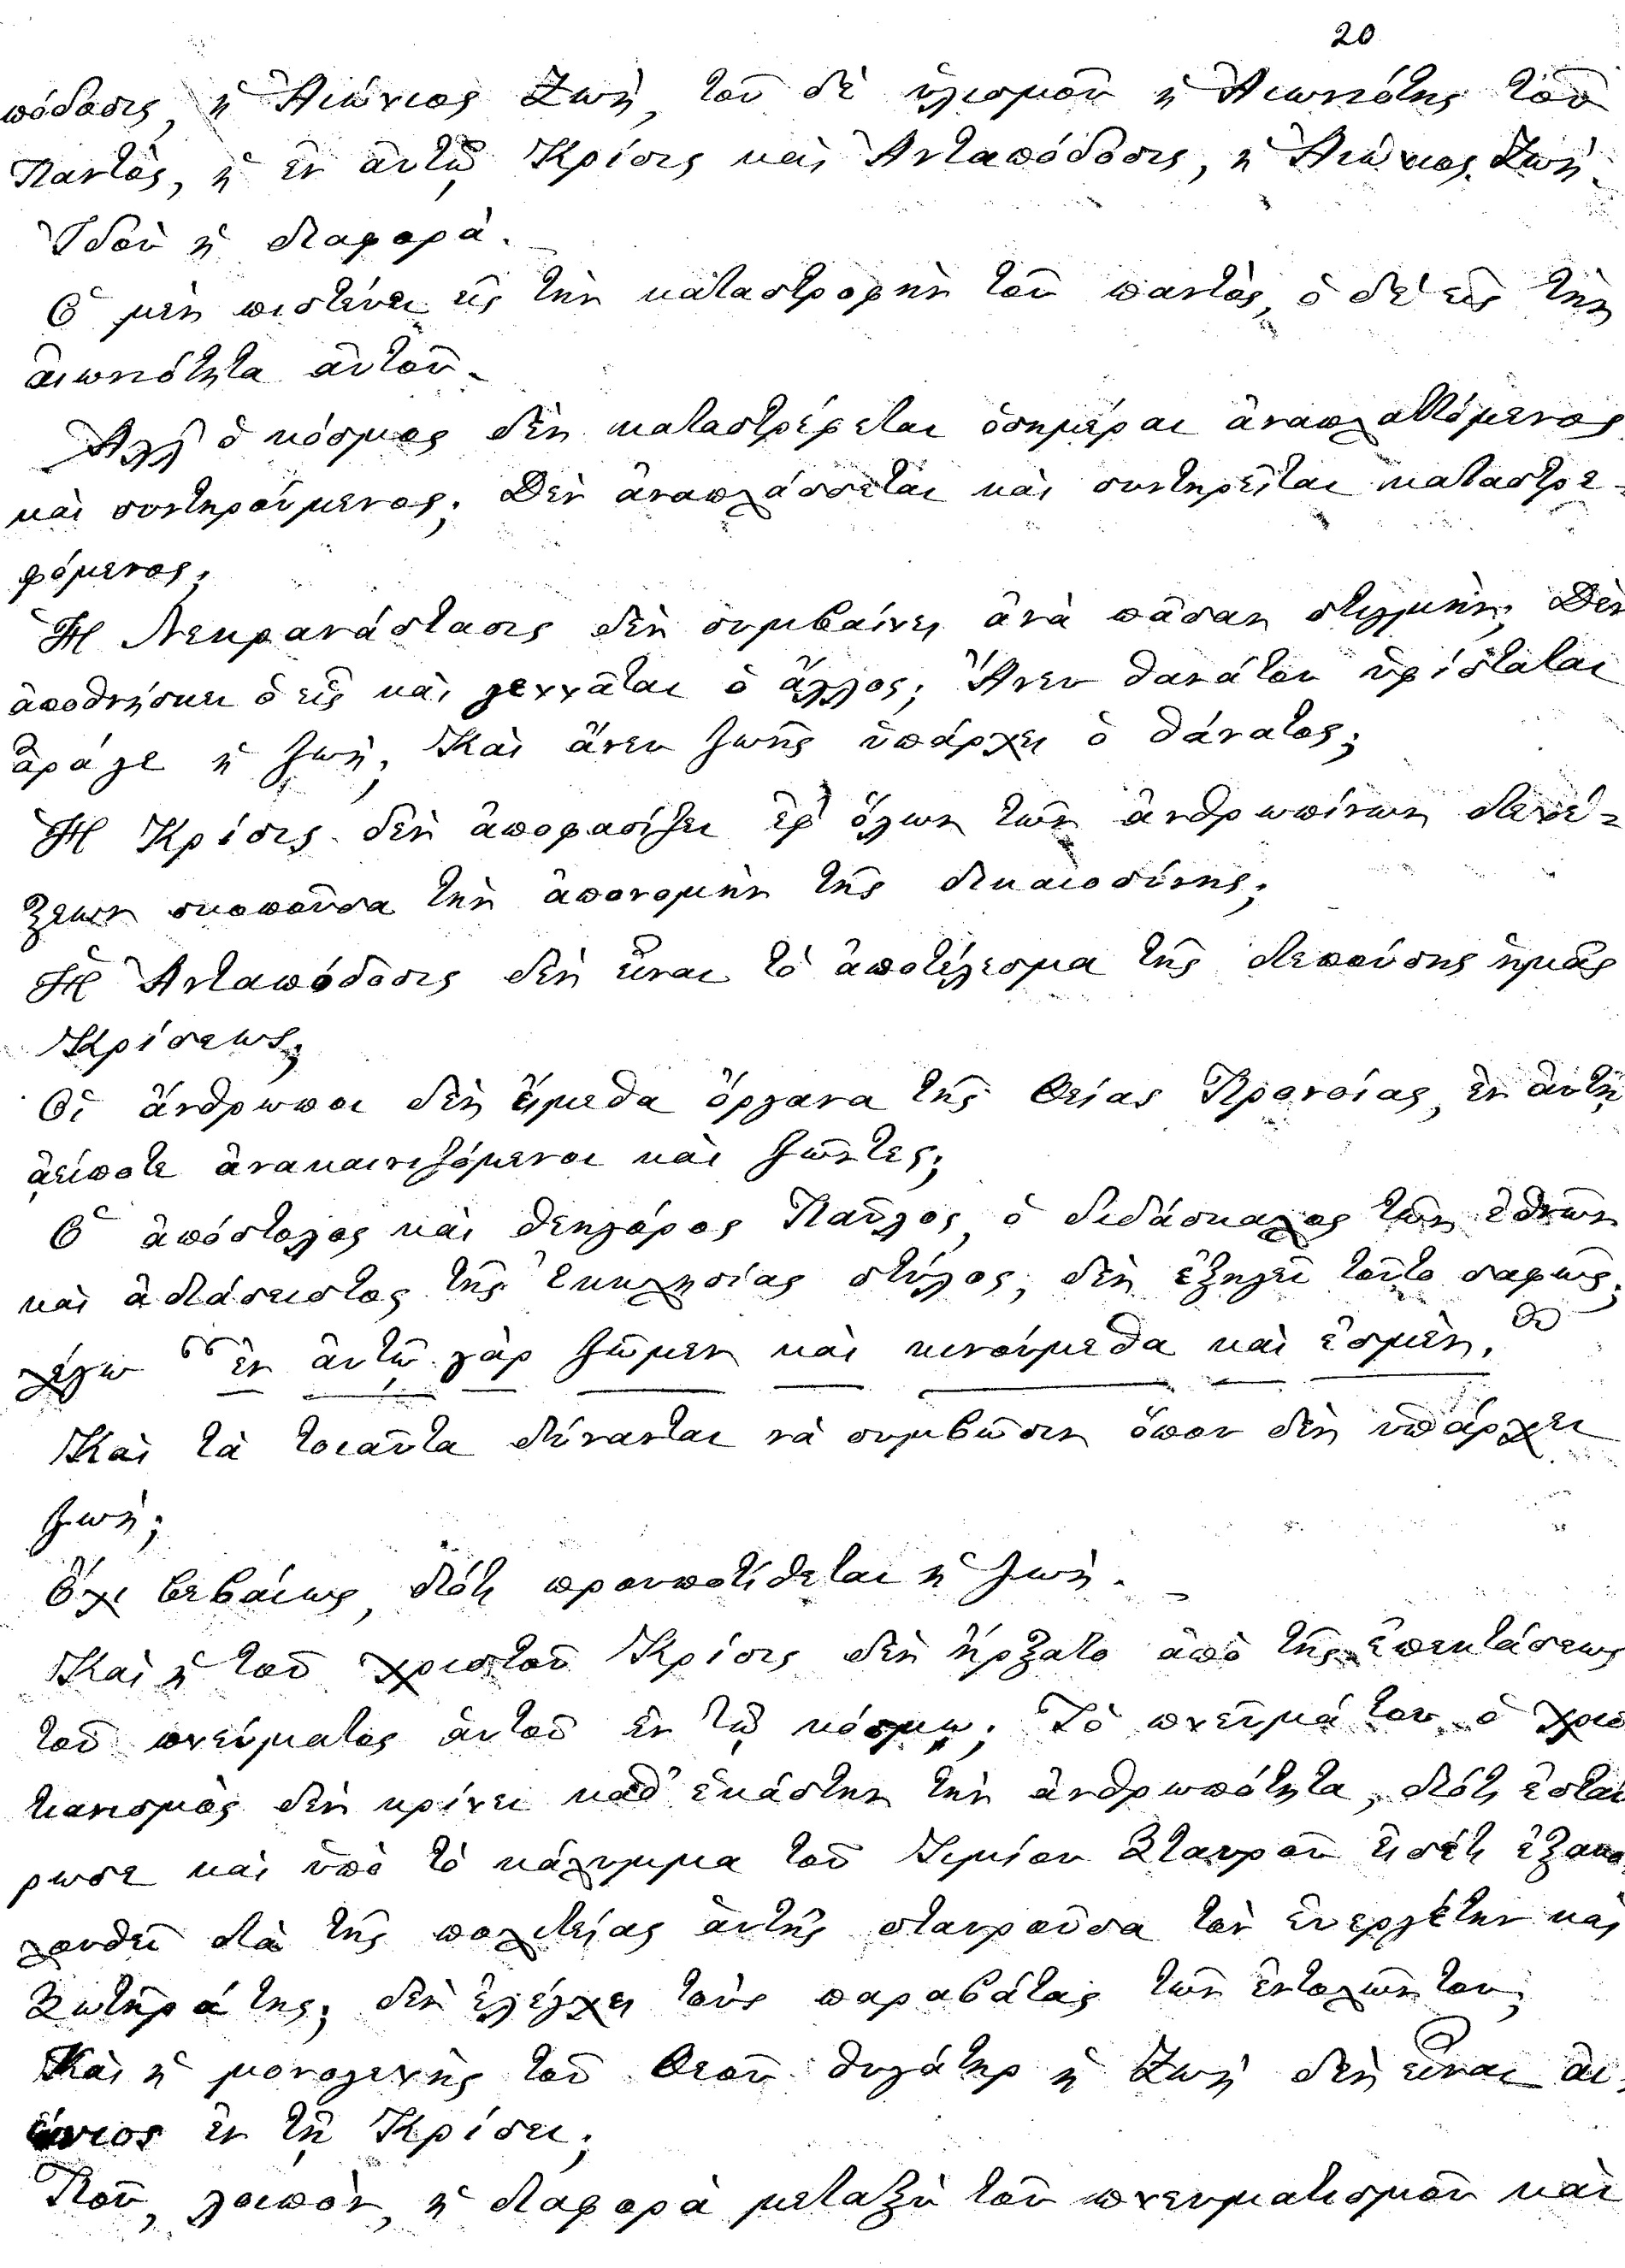 20
πόδοσις, ἡ Αἰώνιος Ζωή, τοῦ δὲ ὑλισμοῦ ἡ Αἰωνιότης τοῦ
Παντὸς, ἡ ἐν αὐτῷ Κρίσις καὶ Ἀνταπόδοσις, ἡ Αἰώνιος Ζωή.
Ἰδοὺ ἡ διαφορά.
Ὁ μὲν πιστεύει εἰς τὴν καταστροφὴν τοῦ παντὸς, ὁ δὲ εἰς τὴν
αἰωνιότητα αὐτοῦ.
Ἀλλ' ὁ κόσμος δὲν καταστρέφεται ὁσημέραι ἀναπλαττόμενος
καὶ συντηρούμενος; Δὲν ἀναπλάσσεται καὶ συντηρεῖται καταστρε-
φόμενος;
Ἡ Νεκρανάστασις δὲν συμβαίνει ἀνὰ πᾶσαν στιγμὴν; Δὲν
ἀποθνήσκει ὁ εἷς καὶ γεννᾶται ὁ ἄλλος; Ἄνευ θανάτου ὑφίσταται
ἆρά γε ἡ ζωὴ; Καὶ ἄνευ ζωῆς ὑπάρχει ὁ θάνατος;
Ἡ Κρίσις δὲν ἀποφασίζει ἐφ' ὅλων τῶν ἀνθρωπίνων διενέ-
ξεων σκοποῦσα τὴν ἀπονομὴν τῆς δικαιοσύνης;
Ἡ Ἀνταπόδοσις δὲν εἶναι τὸ ἀποτέλεσμα τῆς διεπούσης ἡμᾶς
Κρίσεως;
Οἱ ἄνθρωποι δὲν εἴμεθα ὄργανα τῆς Θείας Προνοίας, ἐν αὐτῇ
ἀείποτε ἀνακαινιζόμενοι καὶ ζῶντες;
Ὁ ἀπόστολος καὶ θεηγόρος Παῦλος, ὁ διδάσκαλος τῶν ἐθνῶν
καὶ ἀδιάσειστος τῆς Ἐκκλησίας στύλος, δὲν ἐξηγεῖ τοῦτο σαφῶς;
λέγω "ἐν αὐτῷ γὰρ ζῶμεν καὶ κινούμεθα καὶ ἐσμὲν."
Καὶ τὰ τοιαῦτα δύνανται νὰ συμβῶσιν ὅπου δὲν ὑπάρχει
ζωή;
Ὄχι βεβαίως, διότι προυποτίθεται ἡ ζωή.
Καὶ ἡ τοῦ Χριστοῦ Κρίσις δὲν ἤρξατο ἀπὸ τῆς ἐπεκτάσεως
τοῦ πνεύματος αὐτοῦ ἐν τῷ κόσμῳ; Τὸ πνεῦμά του ὁ Χρισ
τιανισμὸς δὲν κρίνει καθ' ἑκάστην τὴν ἀνθρωπότητα, διότι ἐσταύ
ρωσε καὶ ὑπὸ τὸ κάλυμμα τοῦ Τιμίου Σταυροῦ εἰσέτι ἐξακο
λουθεῖ διὰ τῆς πολιτείας αὐτῆς σταυροῦσα τὸν εὐεργέτην καὶ
Σωτῆρά της; δὲν ἐλέγχει τοὺς παραβάτας τῶν ἐντολῶν του;
Καὶ ἡ μονογενὴς τοῦ Θεοῦ θυγάτηρ ἡ Ζωὴ δὲν εἶναι αἰ
ώνιος ἐν τῇ Κρίσει;
Ποῦ, λοιπὸν, ἡ διαφορὰ μεταξὺ τοῦ πνευματισμοῦ καὶ